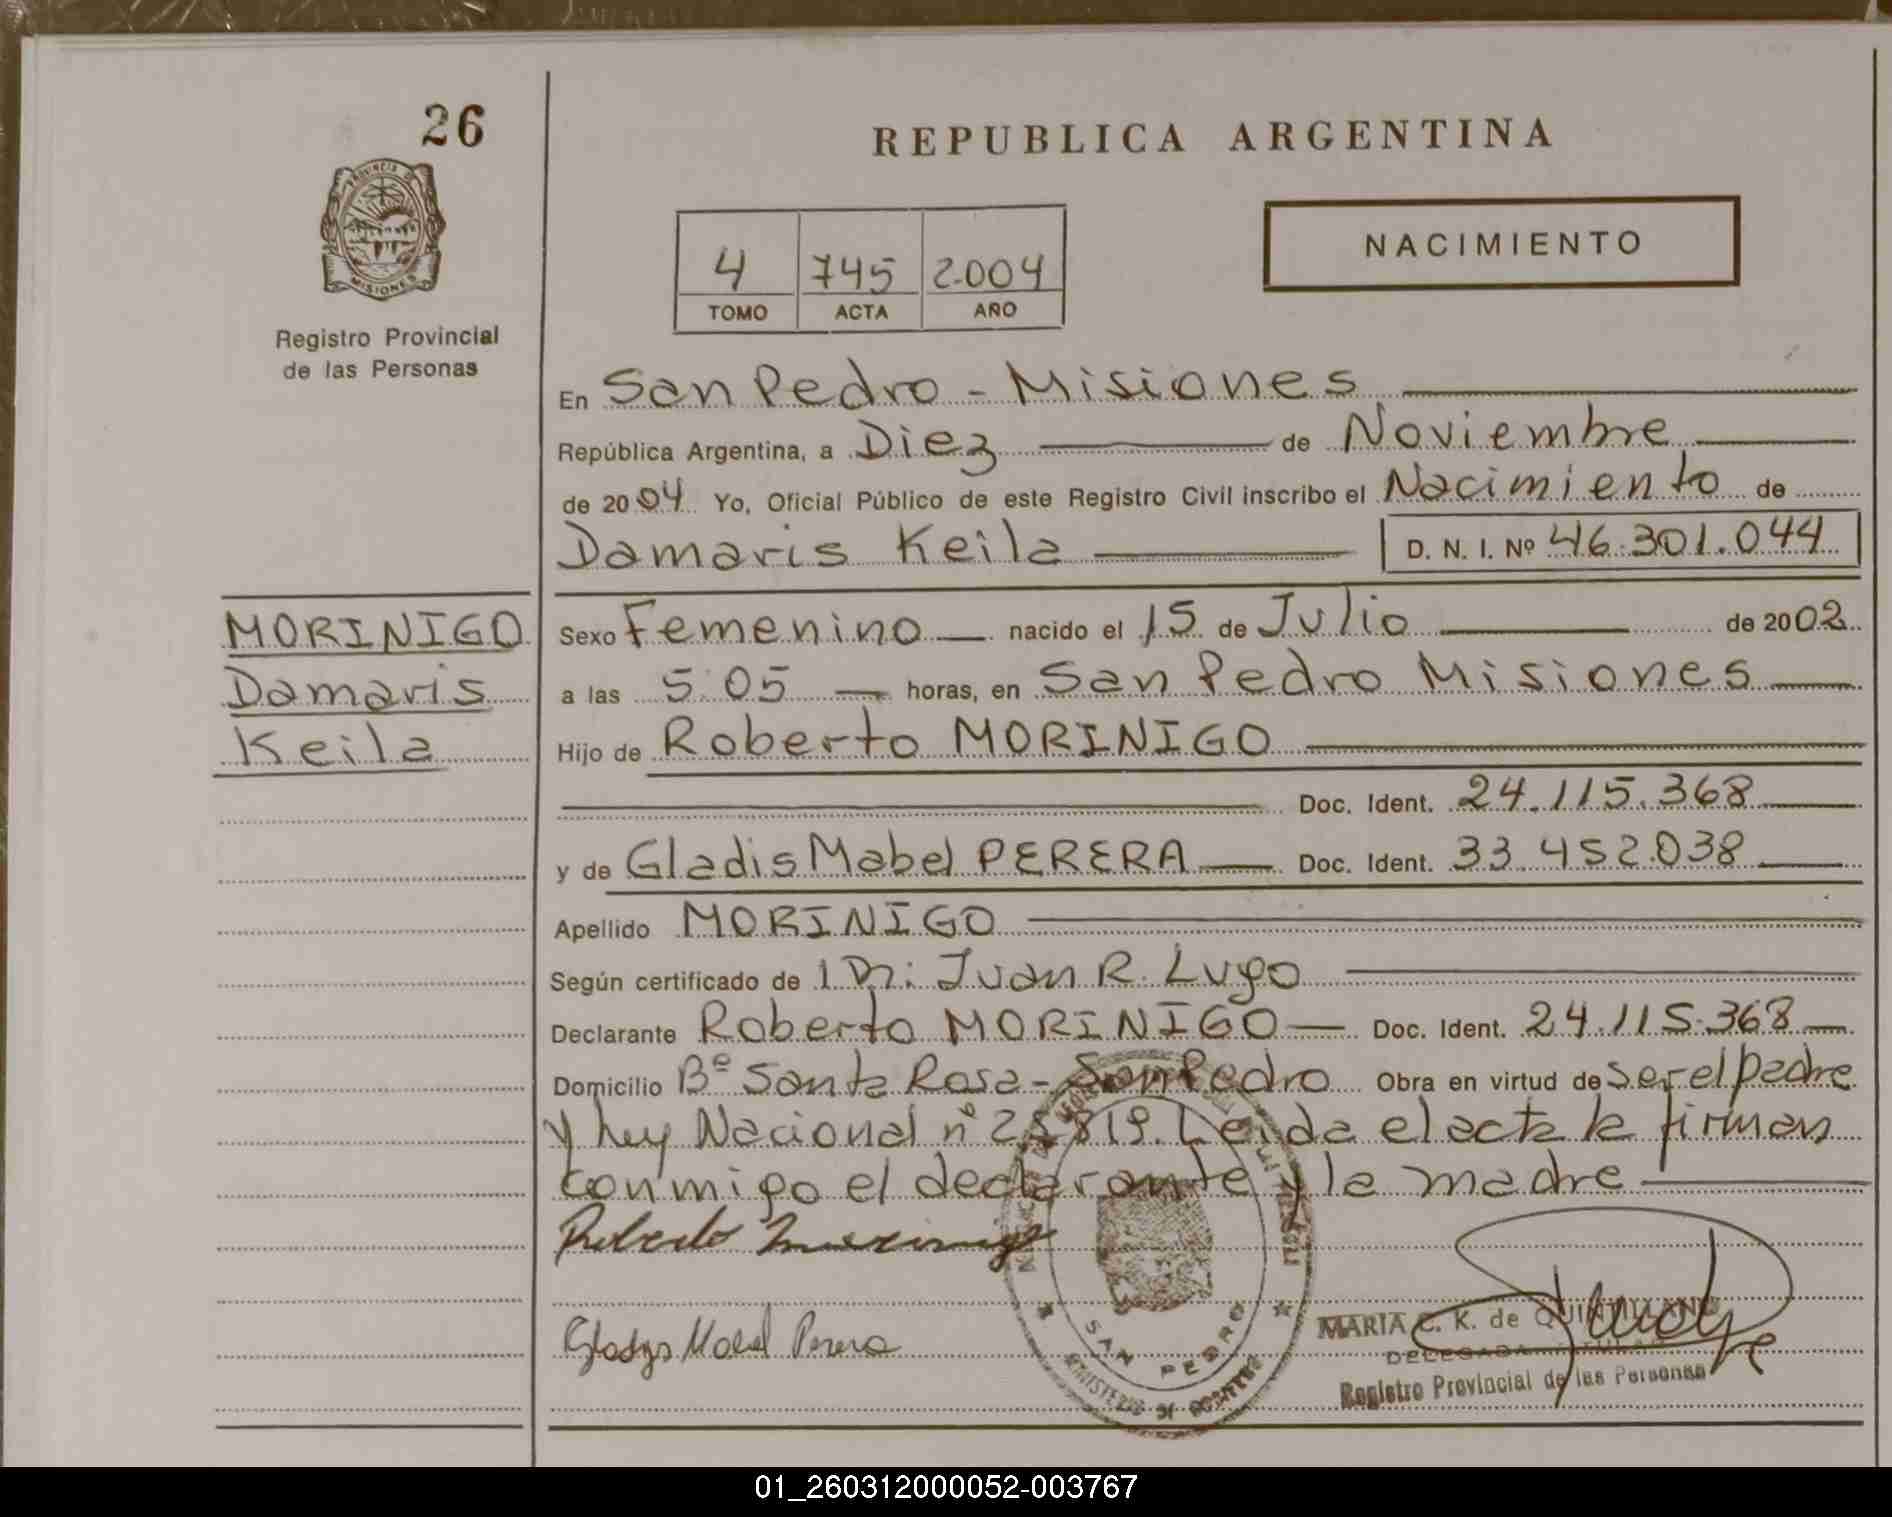 26
PROVINCIA DE
MISIONES
Registro Provincial
de las Personas
REPUBLICA ARGENTINA
NACIMIENTO
4 745 2.004
TOMO ACTA AÑO
En San Pedro - Misiones
República Argentina, a Diez de Noviembre
de 2004 Yo, Oficial Público de este Registro Civil inscribo el Nacimiento de
Damaris Keila D. N. I. Nº 46.301.044
MORINIGO
Damaris
Keila
Sexo Femenino nacido el 15 de Julio de 2002
a las 5:05 horas, en San Pedro Misiones
Hijo de Roberto MORINIGO
Doc. Ident. 24.115.368
y de Gladis Mabel PERERA Doc. Ident. 33.452.038
Apellido MORINIGO
Según certificado de 1 Dr: Juan R. Lugo
Declarante Roberto MORINIGO Doc. Ident. 24.115.368
Domicilio Bº Santa Rosa - San Pedro Obra en virtud de ser el padre
y Ley Nacional nº 25819. Leida el acta la firman
conmigo el declarante y la madre
Roberto Morinigo
Gladys Mabel Perera
SAN PEDRO
MINISTERIO DE GOBIERNO
MARIA C. K. de QUINTILLANO
DELEGADA TITULAR
Registro Provincial de las Personas
01_260312000052-003767